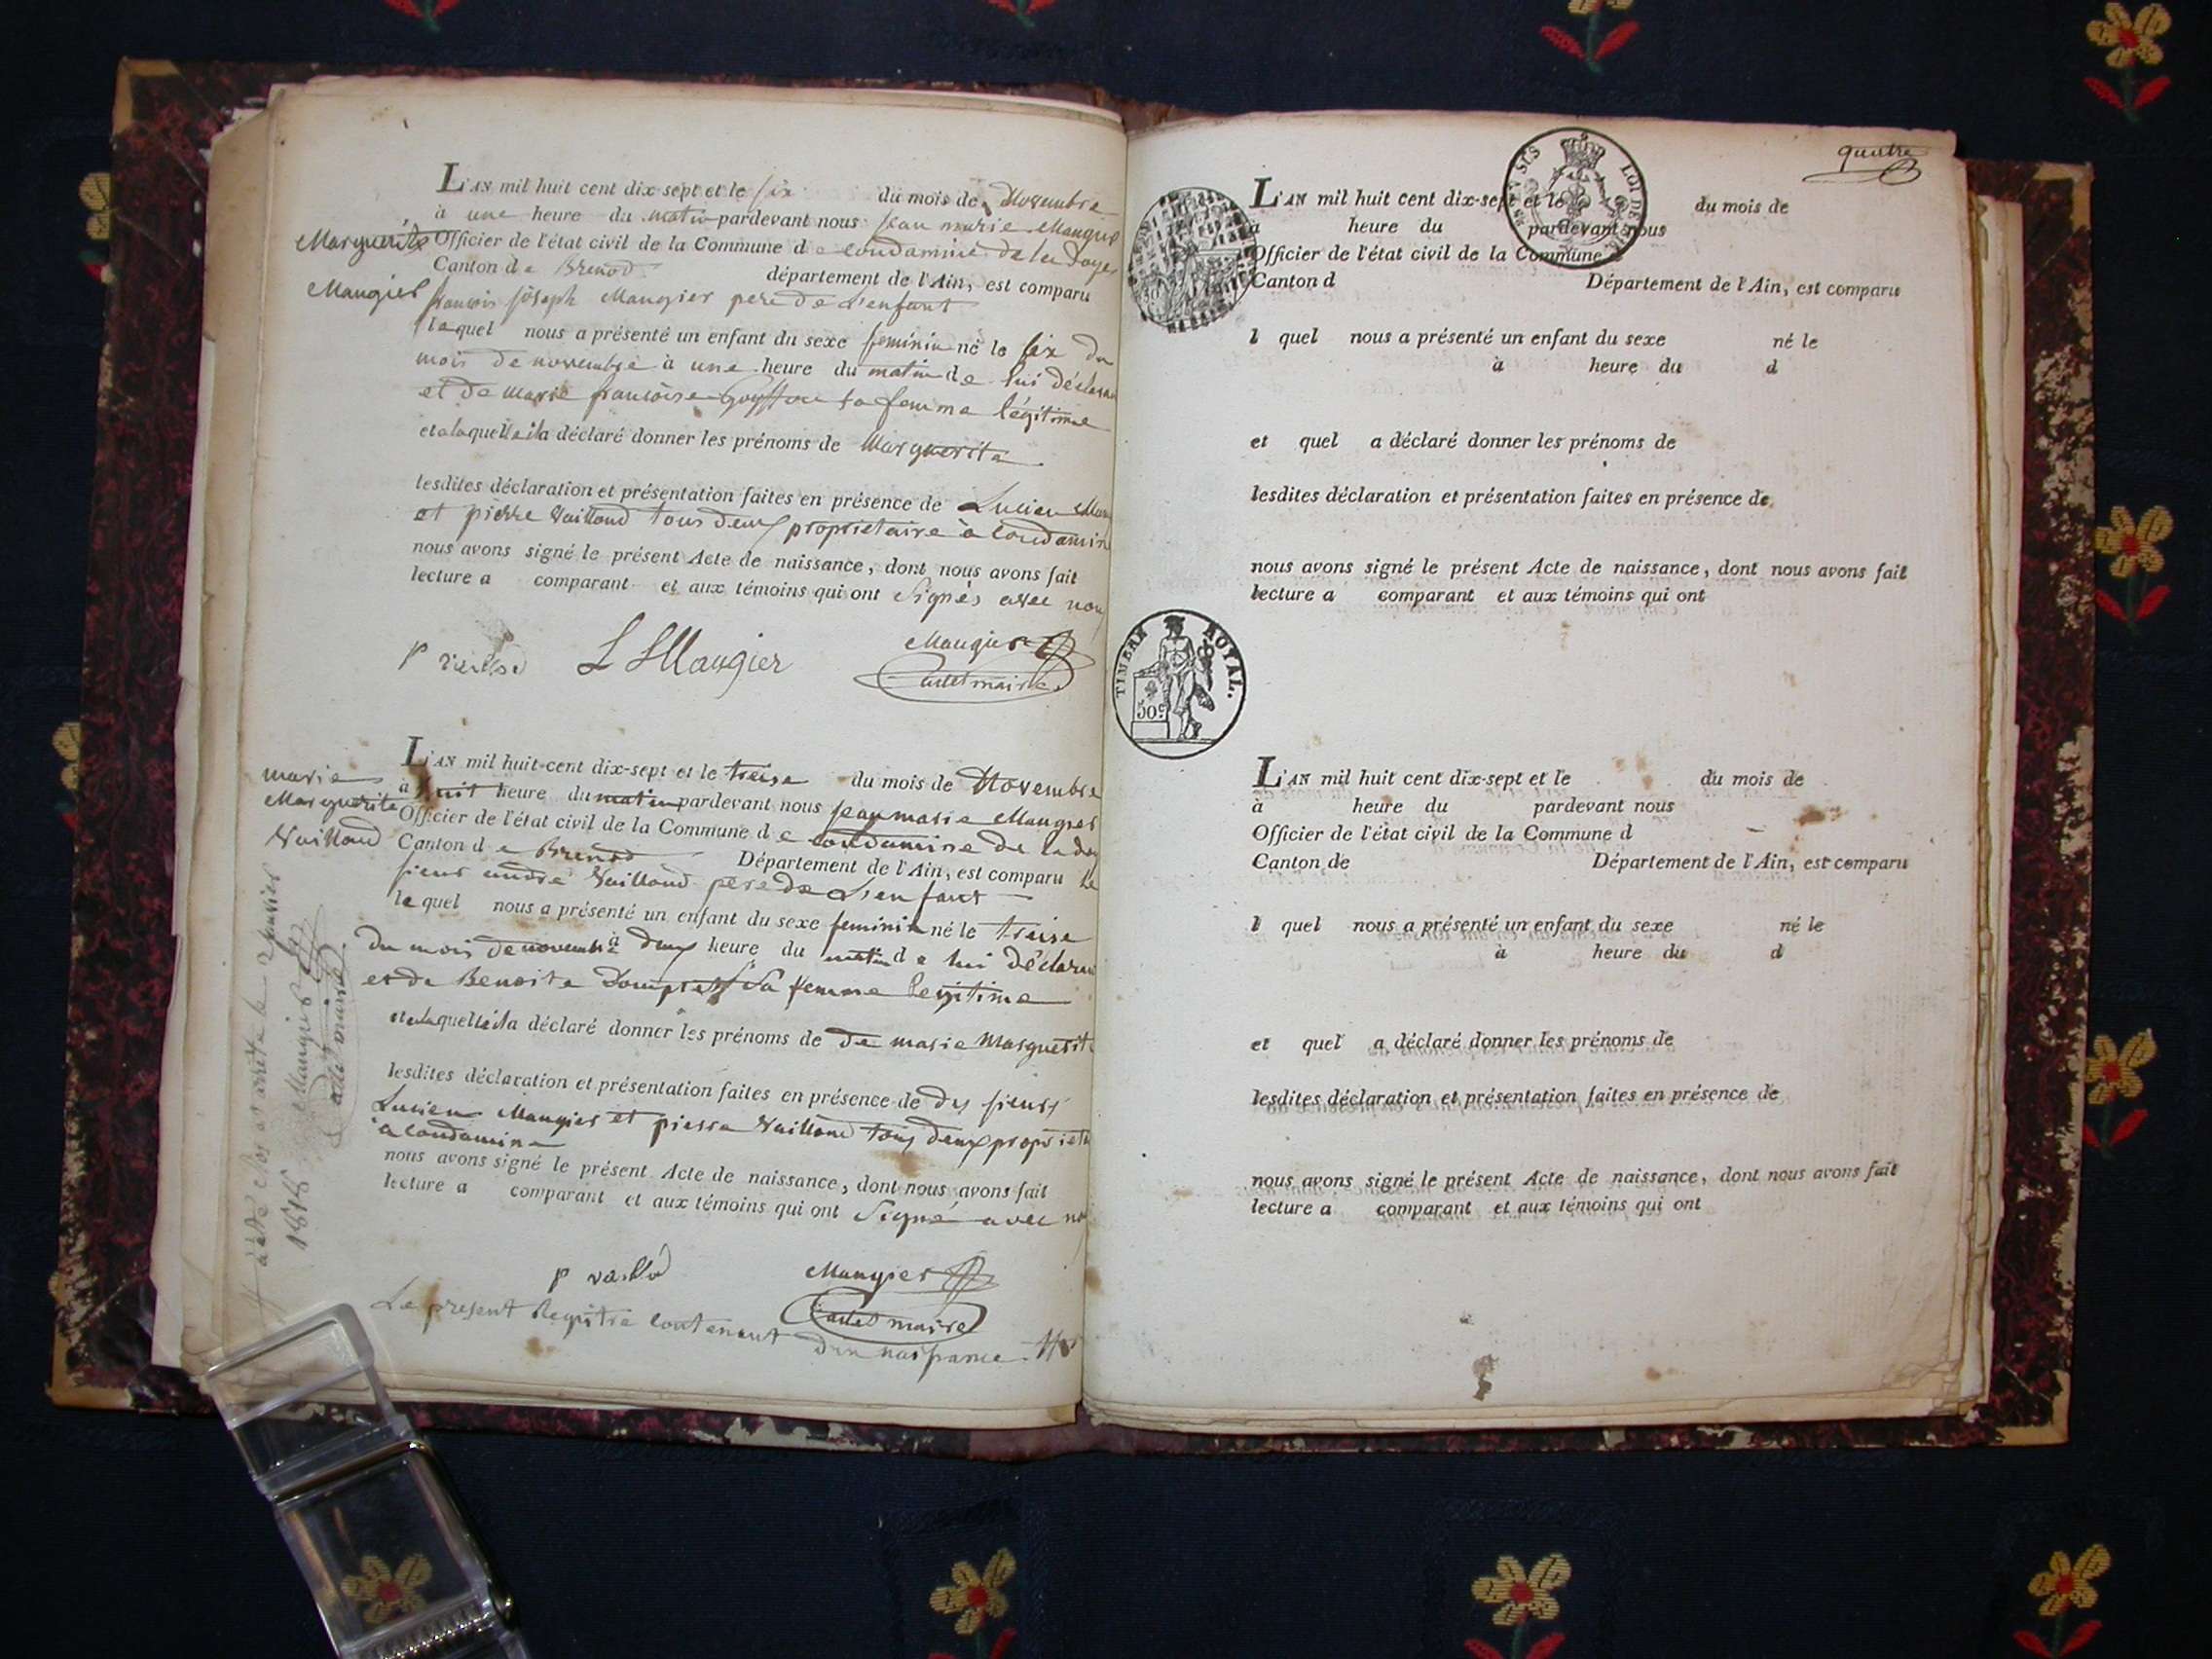 L'AN mil huit cent dix-sept et le six du mois de Novembre
à une heure du matin pardevant nous Jean marie Maugier
Marguerite
Officier de l'état civil de la Commune de Condamine de la Doye
Canton de Brenod département de l'Ain, est comparu
Maugier
francois joseph Maugier pere de L'enfant
lequel nous a présenté un enfant du sexe feminin né le six du
mois de novembre à une heure du matin de lui déclarant
et de marie francoise sa femme légitime
et a laquelle il a déclaré donner les prénoms de Marguerite
lesdites déclaration et présentation faites en présence de Lucien
et pierre Vailloud tous deux proprietaire à Condamine
nous avons signé le présent Acte de naissance, dont nous avons fait
lecture a comparant et aux témoins qui ont Signés avec nou
p vaillod L Maugier Maugier
adet maire
L'AN mil huit-cent dix-sept et le treise du mois de Novembre
marie
à huit heure du matin pardevant nous jean marie Maugier
Marguerite
Officier de l'état civil de la Commune de Condamine de la doy
Vailloud
Canton de Brenod Département de l'Ain, est comparu le
sieur andré Vailloud pere de L'enfant
lequel nous a présenté un enfant du sexe feminin né le treise
du mois de novembre à deux heure du matin de lui déclaran
et de Benoite sa femme legitime
et a laquelle il a déclaré donner les prénoms de de marie Marguerite
lesdites déclaration et présentation faites en présence de des sieurs
Lucien Maugier et pierre Vailloud tous deux propriet
a Condamine
nous avons signé le présent Acte de naissance, dont nous avons fait
lecture a comparant et aux témoins qui ont Signé avec no
p vaillod Maugier
adet maire
Le present Registre Contenant
naissance
clos et arrêté le 2 janvier
1818 Maugier
adet maire
quatre
L'AN mil huit cent dix-sept et le du mois de
à heure du pardevant nous
Officier de l'état civil de la Commune
Canton d Département de l'Ain, est comparu
l quel nous a présenté un enfant du sexe né le
à heure du d
et quel a déclaré donner les prénoms de
lesdites déclaration et présentation faites en présence de
nous avons signé le présent Acte de naissance, dont nous avons fait
lecture a comparant et aux témoins qui ont
TIMBRE ROYAL.
50c
L'AN mil huit cent dix-sept et le du mois de
à heure du pardevant nous
Officier de l'état civil de la Commune d
Canton de Département de l'Ain, est comparu
l quel nous a présenté un enfant du sexe né le
à heure du d
et quel a déclaré donner les prénoms de
lesdites déclaration et présentation faites en présence de
nous avons signé le présent Acte de naissance, dont nous avons fait
lecture a comparant et aux témoins qui ont